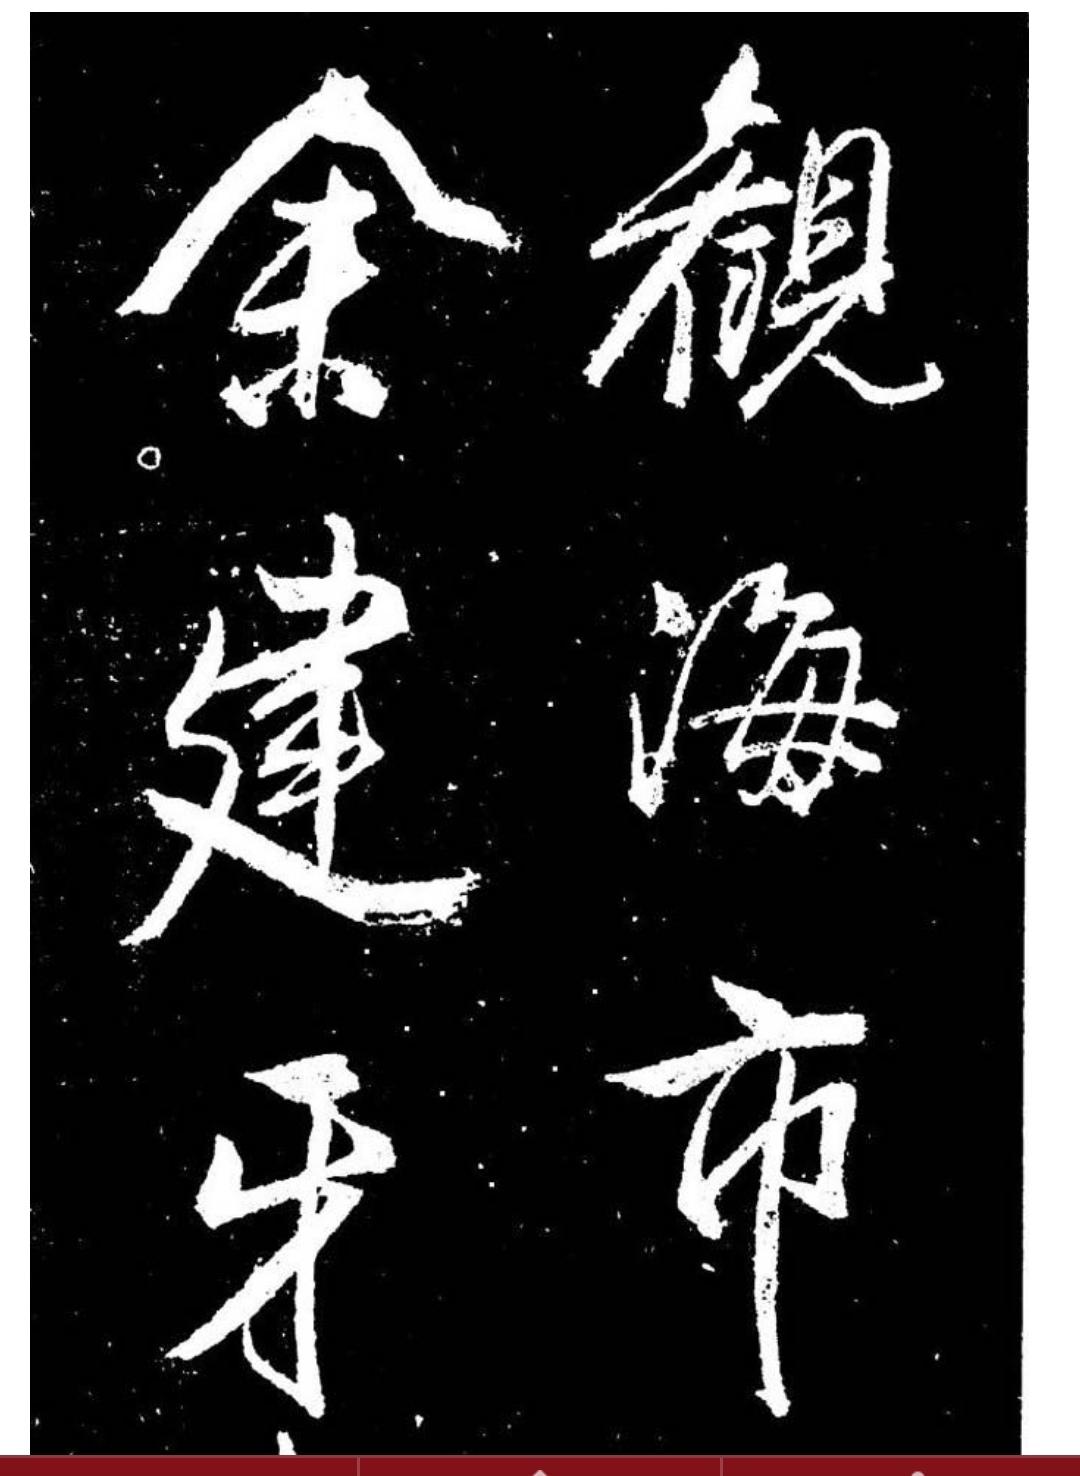 觀海市
余建牙